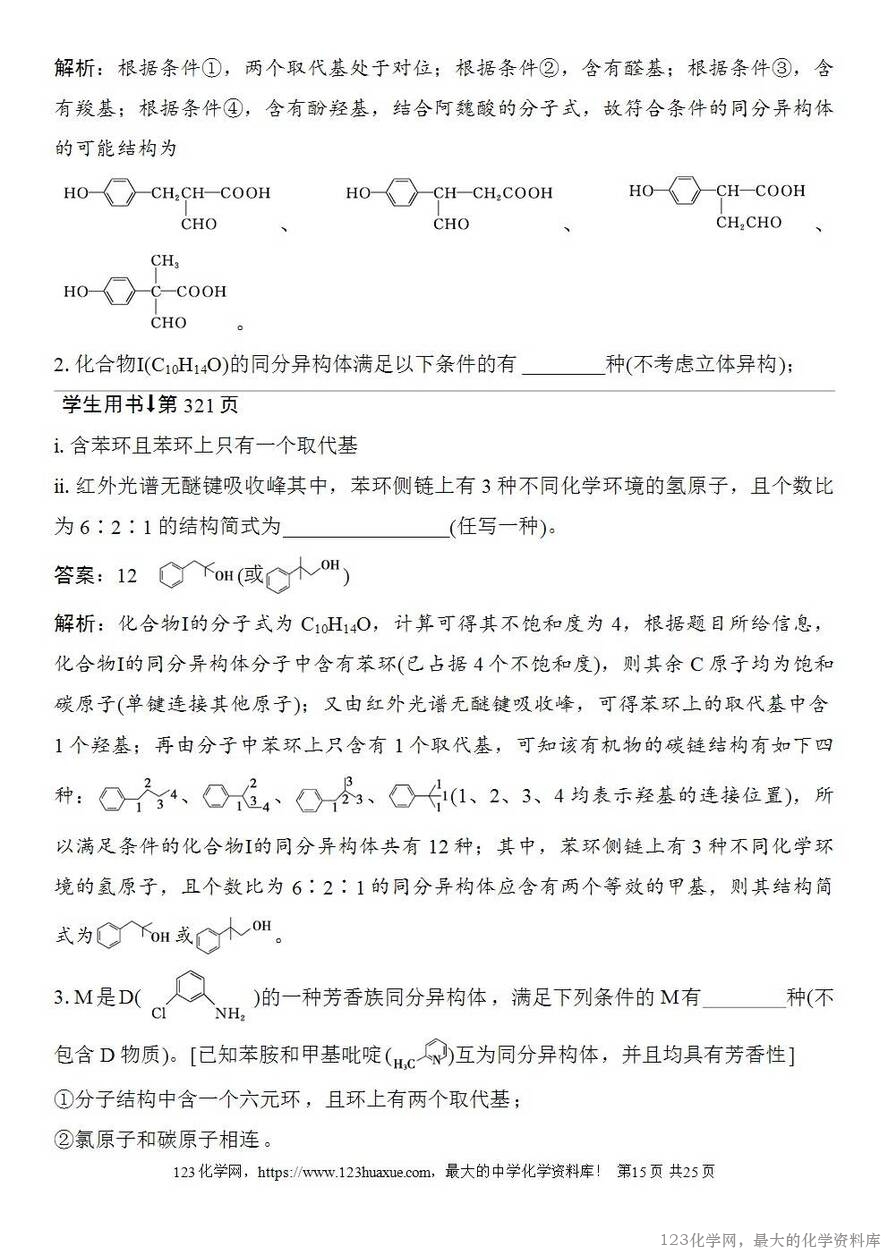 解析：根据条件①，两个取代基处于对位；根据条件②，含有醛基；根据条件③，含
有羧基；根据条件④，含有酚羟基，结合阿魏酸的分子式，故符合条件的同分异构体
的可能结构为
HO CH₂CH—COOH CHO 、 HO CH—CH₂COOH CHO 、 HO CH—COOH CH₂CHO 、
HO CH₃ C—COOH CHO 。
2. 化合物Ⅰ(C₁₀H₁₄O)的同分异构体满足以下条件的有 ________种(不考虑立体异构)；
学生用书⬇第 321 页
i. 含苯环且苯环上只有一个取代基
ii. 红外光谱无醚键吸收峰其中，苯环侧链上有 3 种不同化学环境的氢原子，且个数比
为 6∶2∶1 的结构简式为________________(任写一种)。
答案：12 OH (或 OH )
解析：化合物Ⅰ的分子式为 C₁₀H₁₄O，计算可得其不饱和度为 4，根据题目所给信息，
化合物Ⅰ的同分异构体分子中含有苯环(已占据 4 个不饱和度)，则其余 C 原子均为饱和
碳原子(单键连接其他原子)；又由红外光谱无醚键吸收峰，可得苯环上的取代基中含
1 个羟基；再由分子中苯环上只含有 1 个取代基，可知该有机物的碳链结构有如下四
种： 1 2 3 4 、 1 2 3 4 、 1 2 3 3 、 1 1 1 (1、2、3、4 均表示羟基的连接位置)，所
以满足条件的化合物Ⅰ的同分异构体共有 12 种；其中，苯环侧链上有 3 种不同化学环
境的氢原子，且个数比为 6∶2∶1 的同分异构体应含有两个等效的甲基，则其结构简
式为 OH 或 OH 。
3. M 是 D( Cl NH₂ )的一种芳香族同分异构体，满足下列条件的 M 有________种(不
包含 D 物质)。[已知苯胺和甲基吡啶( H₃C N )互为同分异构体，并且均具有芳香性]
①分子结构中含一个六元环，且环上有两个取代基；
②氯原子和碳原子相连。
123 化学网，https://www.123huaxue.com，最大的中学化学资料库！ 第15 页 共25 页
123化学网，最大的化学资料库